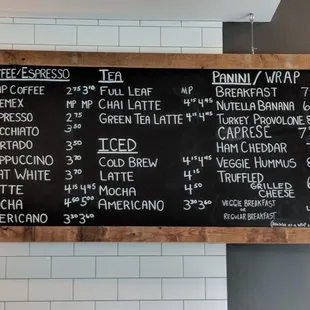 FFEE/ESPRESSO
IP COFFEE 2.75 3.40
EMEX MP MP
PRESSO 2.75
CCHIATO 3.50
RTADO 3.50
APPUCCINO 3.50
AT WHITE 3.50
TTE 4.15 4.45
CHA 4.60 5.00
MERICANO 3.30 3.60
TEA
FULL LEAF MP
CHAI LATTE 4.15 4.45
GREEN TEA LATTE 4.15 4.45
ICED
COLD BREW 4.15 4.45
LATTE 4.15
MOCHA 4.50
AMERICANO 3.30 3.60
PANINI / WRAP
BREAKFAST 7
NUTELLA BANANA 6
TURKEY PROVOLONE 8
CAPRESE 7
HAM CHEDDAR 7
VEGGIE HUMMUS 8
TRUFFLED
GRILLED
CHEESE
VEGGIE BREAKFAST
OR
REGULAR BREAKFAST